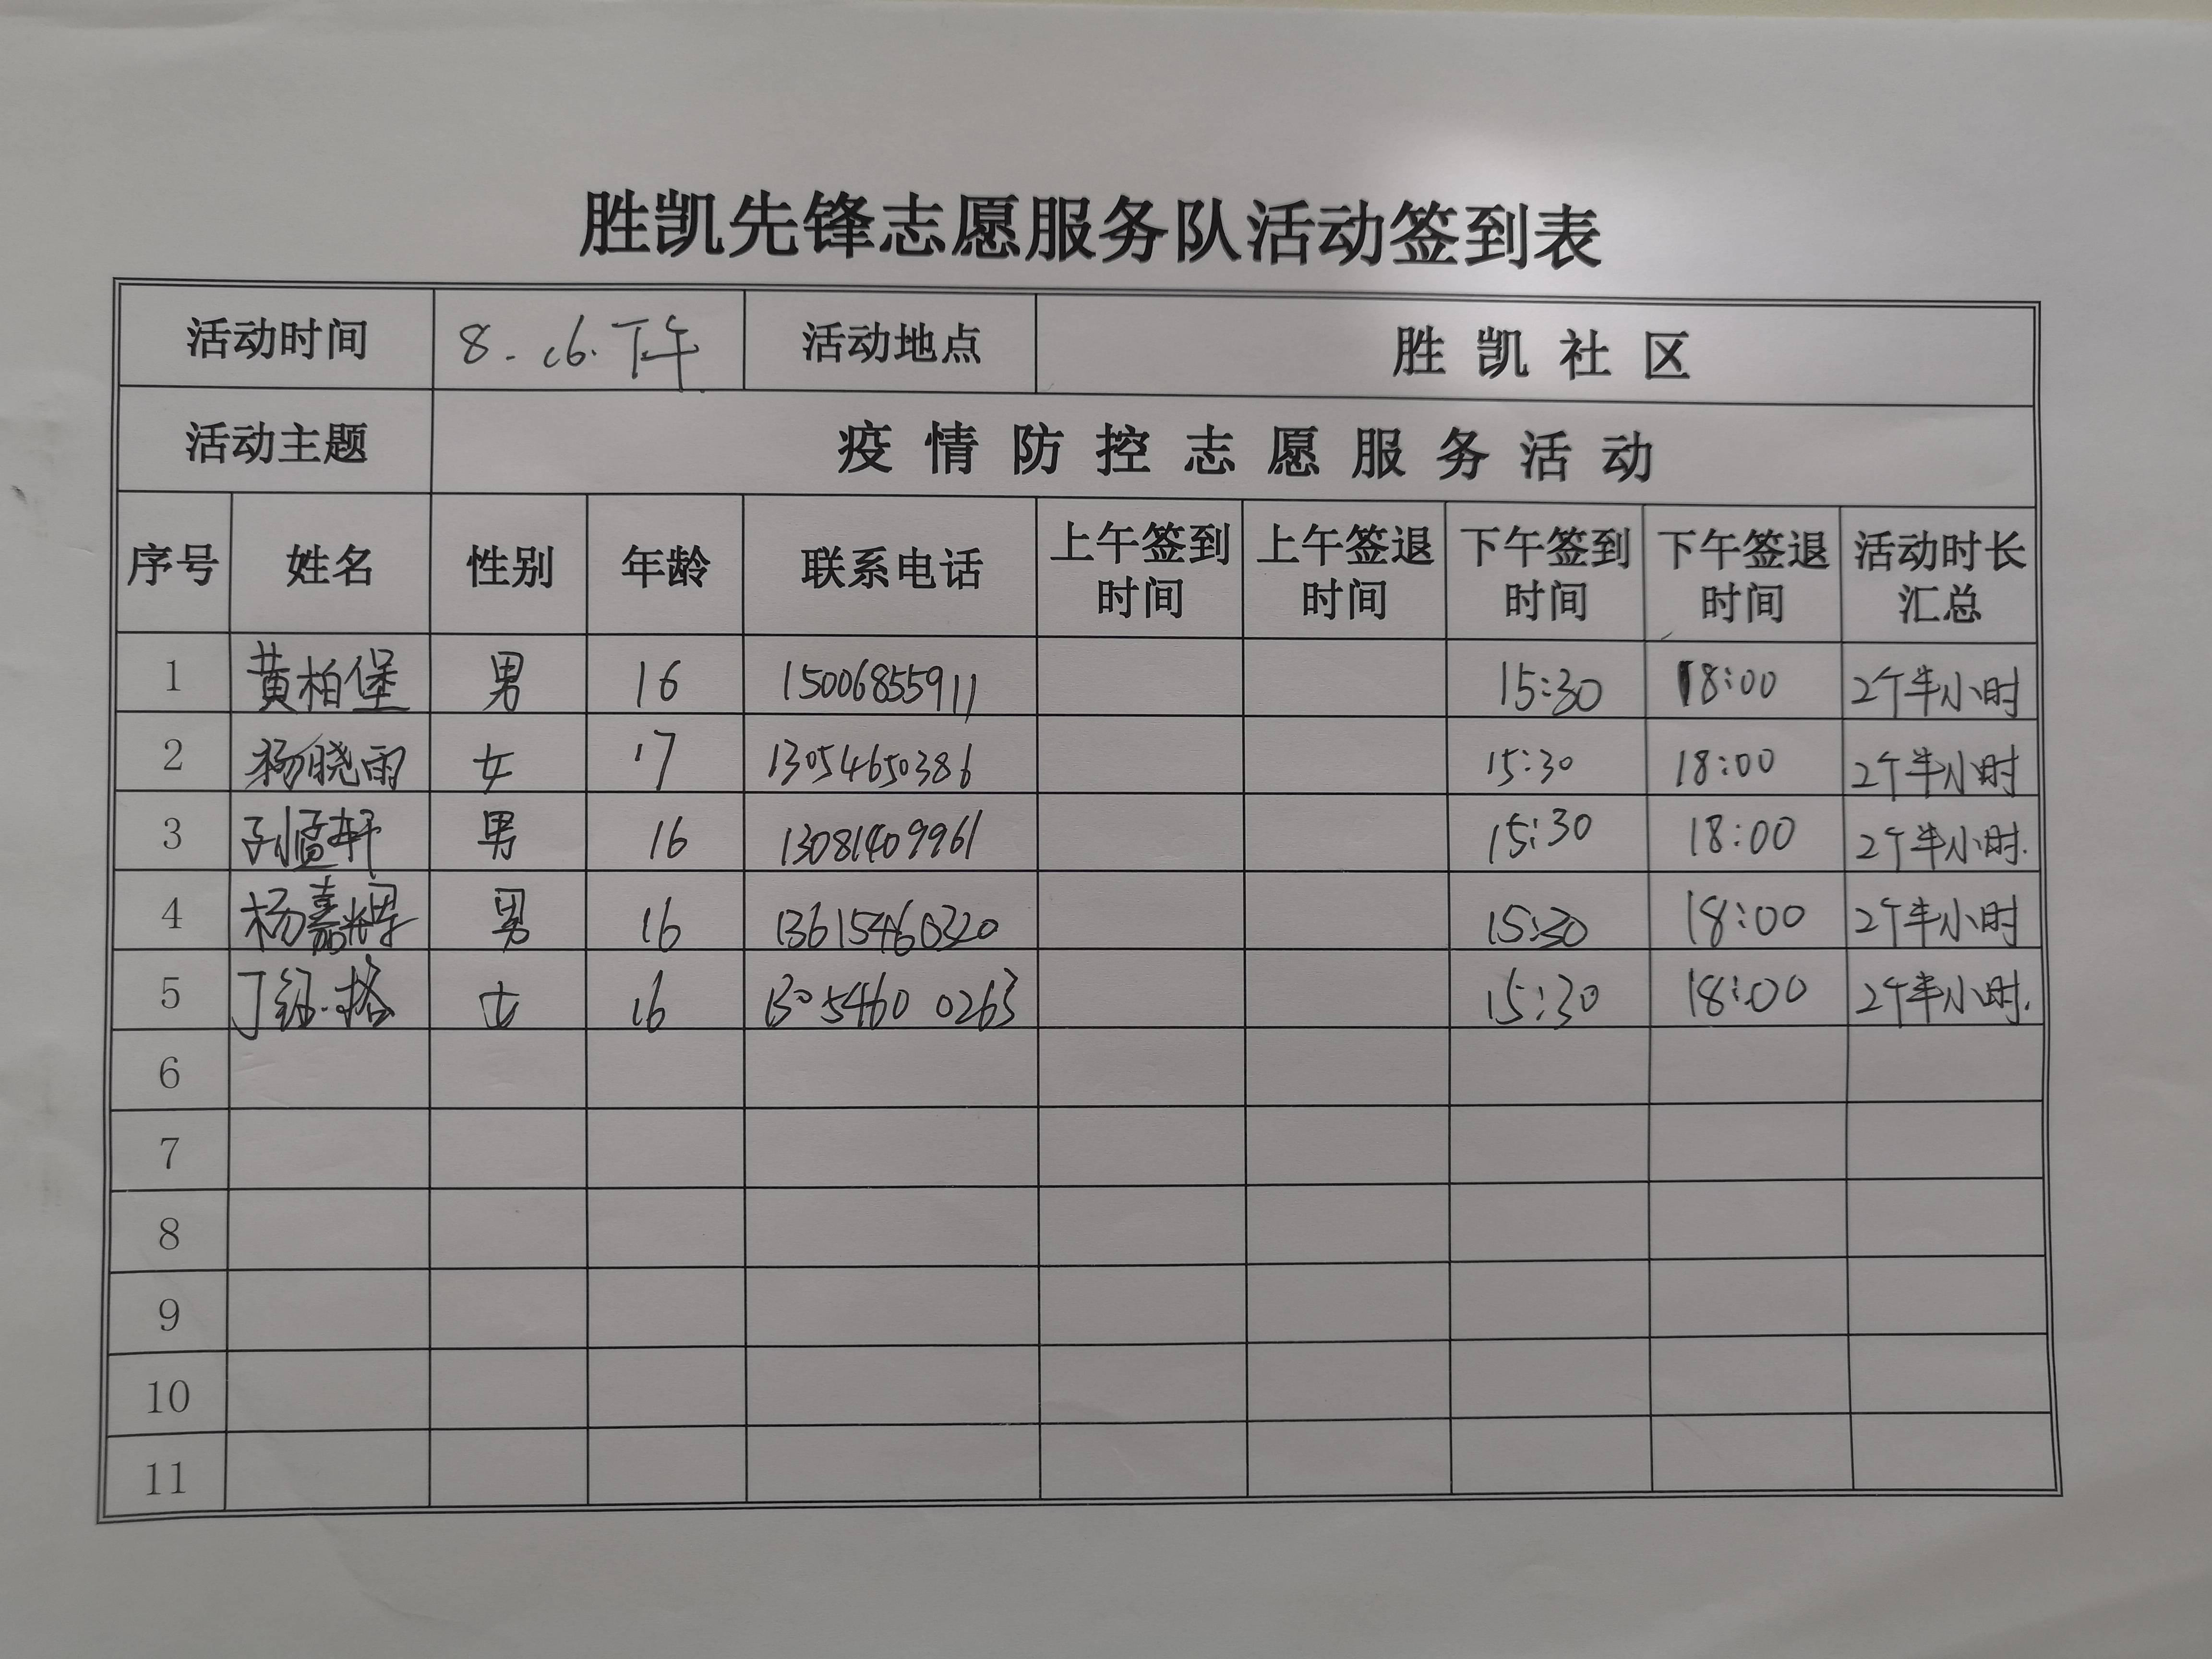 胜凯先锋志愿服务队活动签到表
活动时间 8.16.下午 活动地点 胜凯社区
活动主题 疫情防控志愿服务活动
序号 姓名 性别 年龄 联系电话 上午签到时间 上午签退时间 下午签到时间 下午签退时间 活动时长汇总
1 黄柏堡 男 16 15006855911 15:30 18:00 2个半小时
2 杨晓雨 女 17 13054650386 15:30 18:00 2个半小时
3 孙孟轩 男 16 13081409961 15:30 18:00 2个半小时.
4 杨嘉辉 男 16 13615460320 15:30 18:00 2个半小时
5 丁 女 16 13054600263 15:30 18:00 2个半小时.
6
7
8
9
10
11